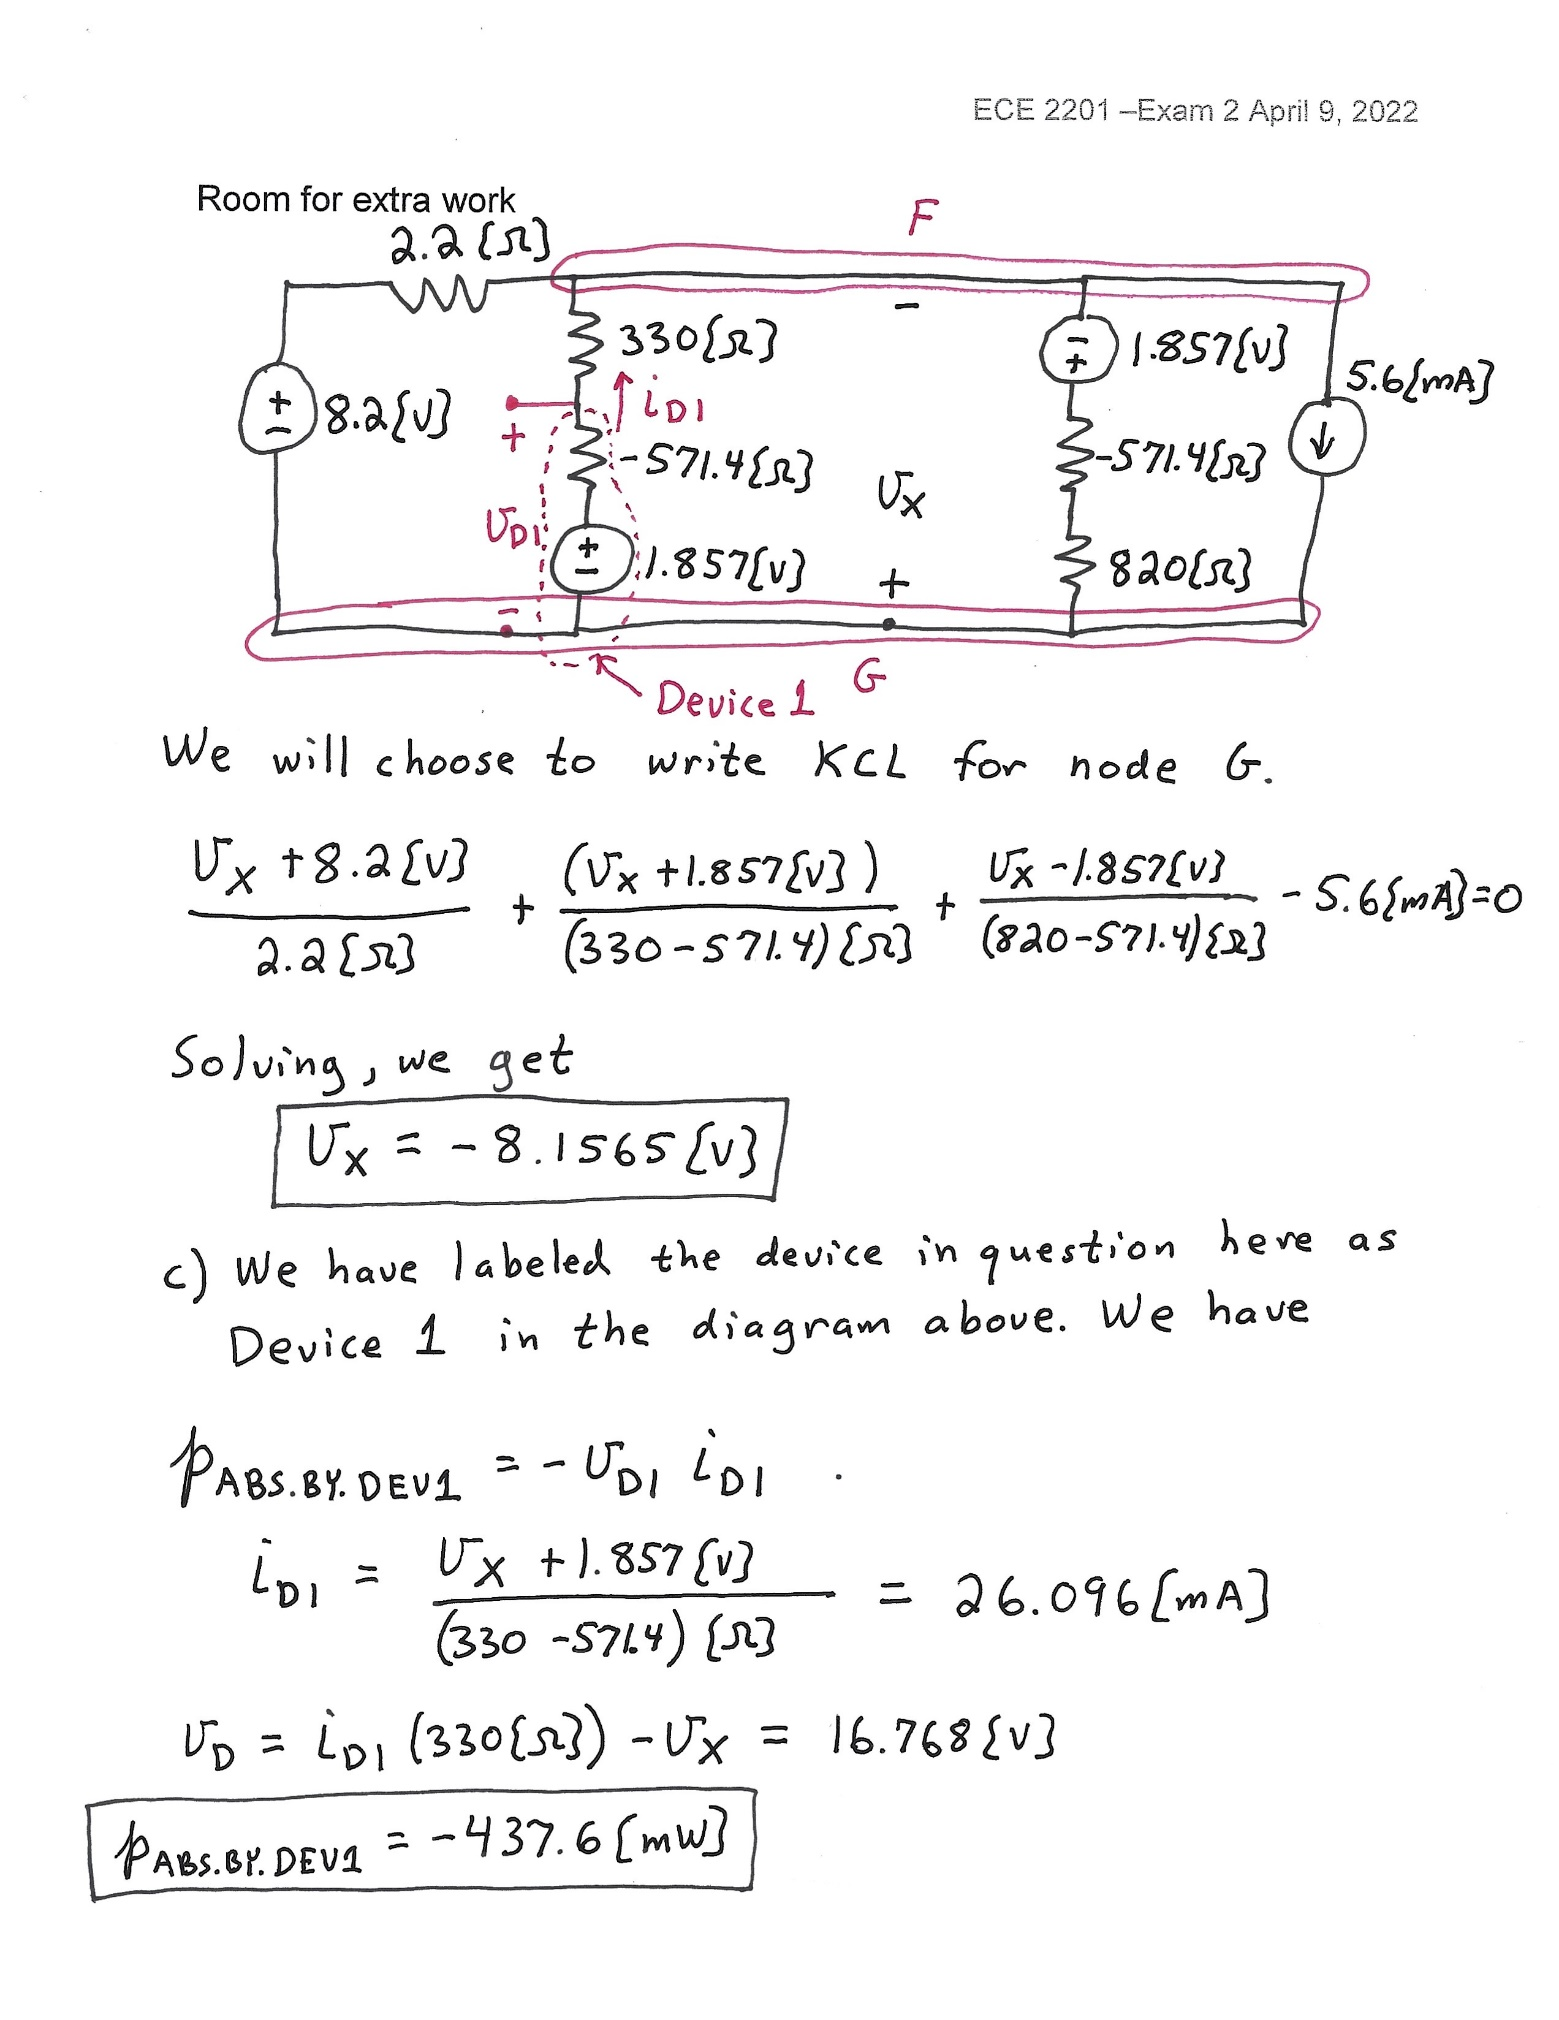 ECE 2201 –Exam 2 April 9, 2022
Room for extra work
2.2 [Ω]
F
−
330[Ω]
1.857[V]
5.6[mA]
iD1
8.2[V]
+
-571.4[Ω]
-571.4[Ω]
vX
vD1
1.857[V]
+
820[Ω]
−
G
Device 1
We will choose to write KCL for node G.
(vX + 8.2[V])/(2.2[Ω]) + (vX + 1.857[V])/((330 - 571.4)[Ω]) + (vX - 1.857[V])/((820 - 571.4)[Ω]) - 5.6[mA] = 0
Solving, we get
vX = - 8.1565 [V]
c) We have labeled the device in question here as
Device 1 in the diagram above. We have
pABS.BY.DEV1 = - vD1 iD1 .
iD1 = (vX + 1.857[V])/((330 - 571.4)[Ω]) = 26.096 [mA]
vD = iD1 (330[Ω]) - vX = 16.768 [V]
pABS.BY.DEV1 = - 437.6 [mW]